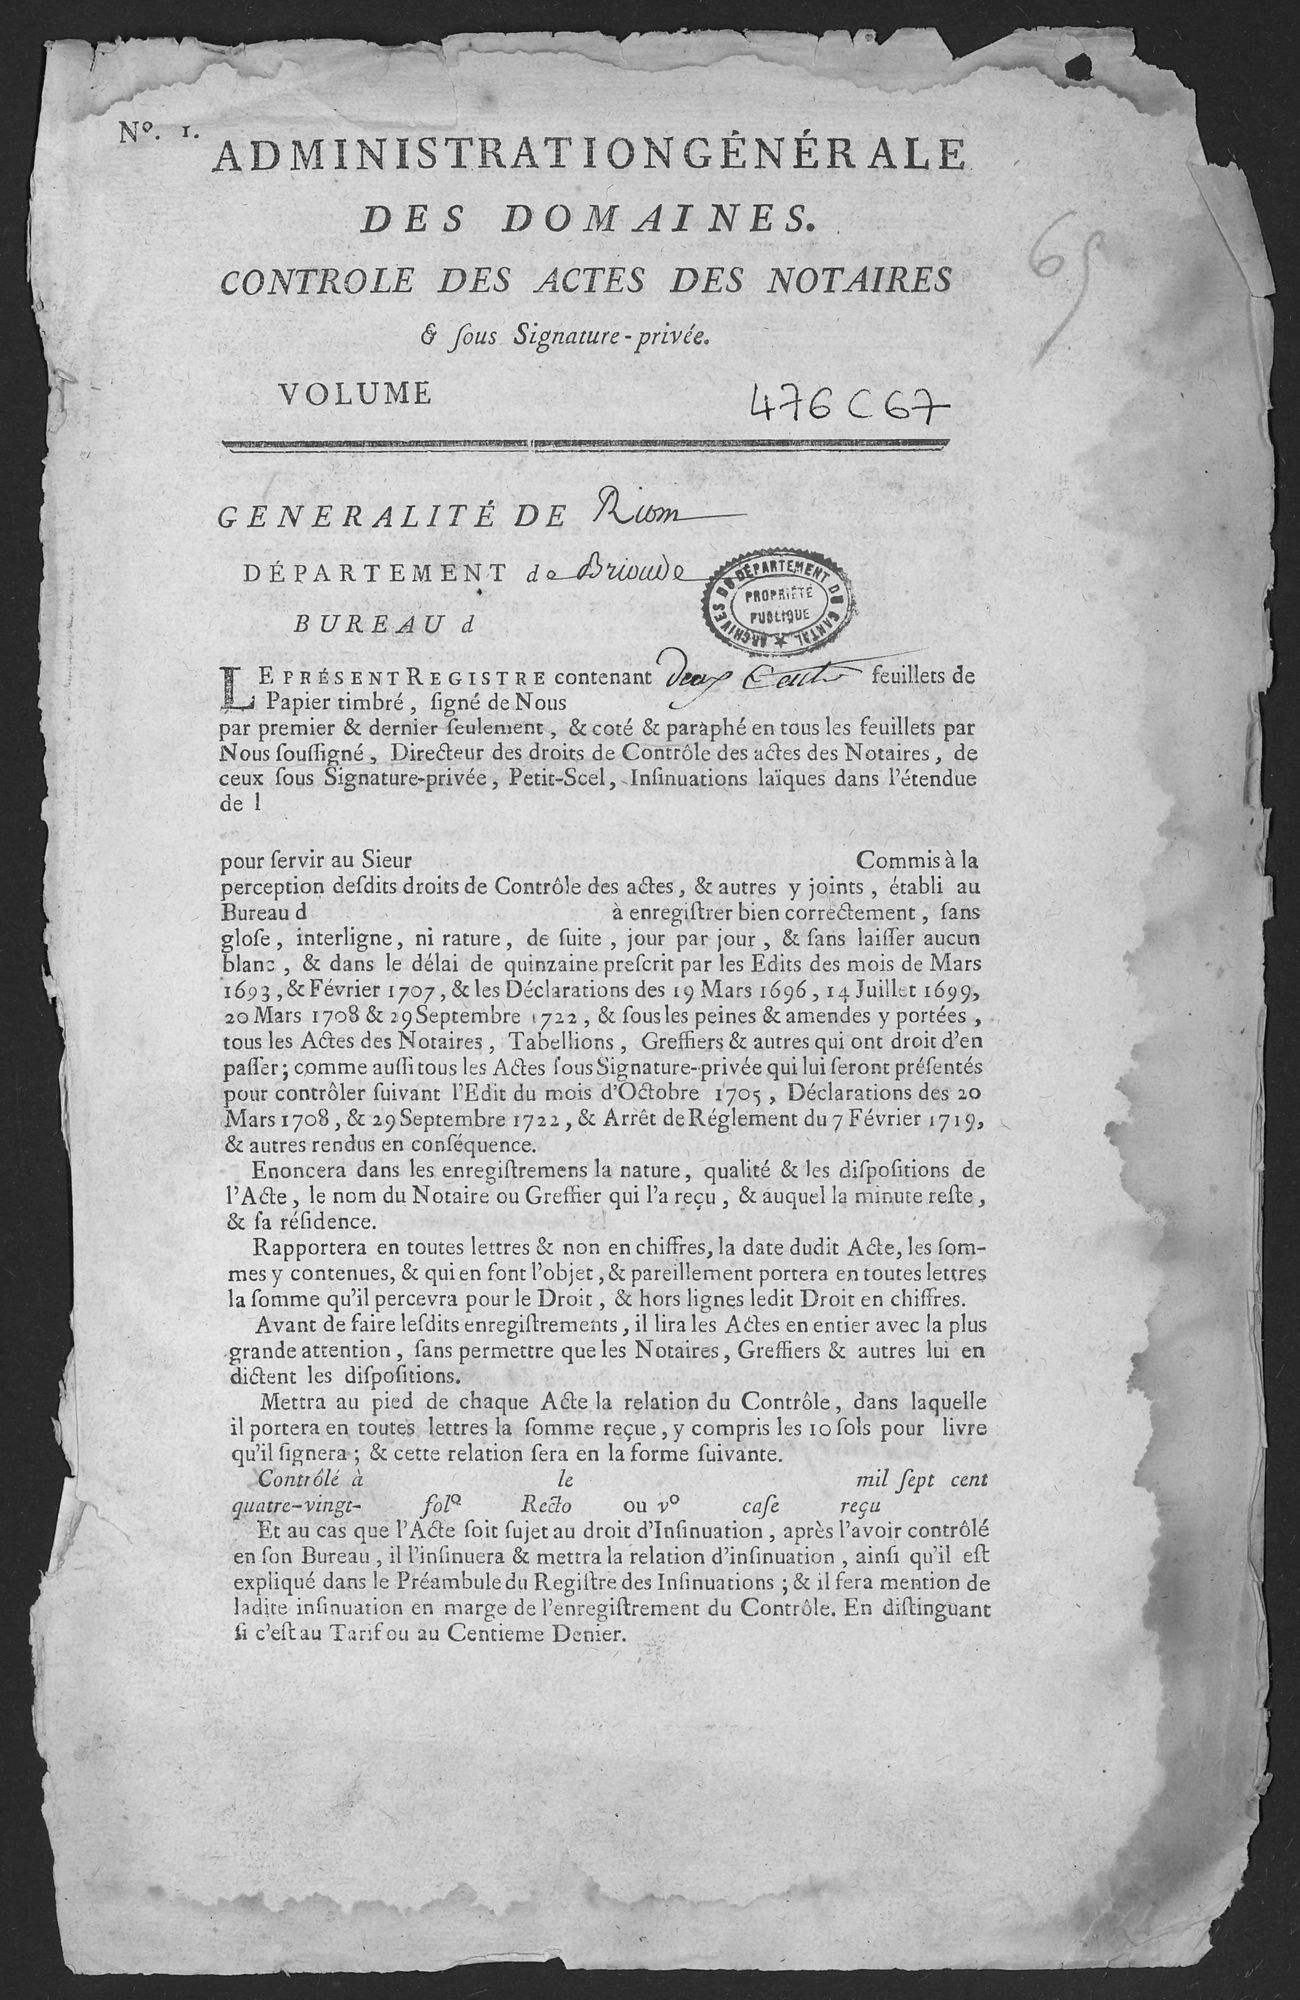 Nº. 1.
ADMINISTRATION GÉNÉRALE
DES DOMAINES.
CONTROLE DES ACTES DES NOTAIRES
& ſous Signature-privée.
65
VOLUME
476 C 67
GENERALITÉ DE Riom
DÉPARTEMENT de Brioude
BUREAU d
ARCHIVES DU DÉPARTEMENT DU CANTAL
PROPRIÉTÉ
PUBLIQUE
LE PRÉSENT REGISTRE contenant Deux Cents feuillets de
Papier timbré, ſigné de Nous
par premier & dernier ſeulement, & coté & paraphé en tous les feuillets par
Nous ſouſſigné, Directeur des droits de Contrôle des actes des Notaires, de
ceux ſous Signature-privée, Petit-Scel, Inſinuations laïques dans l'étendue
de l
pour ſervir au Sieur Commis à la
perception deſdits droits de Contrôle des actes, & autres y joints, établi au
Bureau d à enregiſtrer bien correctement, ſans
gloſe, interligne, ni rature, de ſuite, jour par jour, & ſans laiſſer aucun
blanc, & dans le délai de quinzaine preſcrit par les Edits des mois de Mars
1693, & Février 1707, & les Déclarations des 19 Mars 1696, 14 Juillet 1699,
20 Mars 1708 & 29 Septembre 1722, & ſous les peines & amendes y portées,
tous les Actes des Notaires, Tabellions, Greffiers & autres qui ont droit d'en
paſſer; comme auſſi tous les Actes ſous Signature-privée qui lui ſeront préſentés
pour contrôler ſuivant l'Edit du mois d'Octobre 1705, Déclarations des 20
Mars 1708, & 29 Septembre 1722, & Arrêt de Réglement du 7 Février 1719,
& autres rendus en conſéquence.
Enoncera dans les enregiſtremens la nature, qualité & les diſpoſitions de
l'Acte, le nom du Notaire ou Greffier qui l'a reçu, & auquel la minute reſte,
& ſa réſidence.
Rapportera en toutes lettres & non en chiffres, la date dudit Acte, les ſom-
mes y contenues, & qui en font l'objet, & pareillement portera en toutes lettres
la ſomme qu'il percevra pour le Droit, & hors lignes ledit Droit en chiffres.
Avant de faire leſdits enregiſtrements, il lira les Actes en entier avec la plus
grande attention, ſans permettre que les Notaires, Greffiers & autres lui en
dictent les diſpoſitions.
Mettra au pied de chaque Acte la relation du Contrôle, dans laquelle
il portera en toutes lettres la ſomme reçue, y compris les 10 ſols pour livre
qu'il ſignera; & cette relation ſera en la forme ſuivante.
Contrôlé à le mil ſept cent
quatre-vingt- folº Recto ou vº caſe reçu
Et au cas que l'Acte ſoit ſujet au droit d'Inſinuation, après l'avoir contrôlé
en ſon Bureau, il l'inſinuera & mettra la relation d'inſinuation, ainſi qu'il eſt
expliqué dans le Préambule du Regiſtre des Inſinuations; & il fera mention de
ladite inſinuation en marge de l'enregiſtrement du Contrôle. En diſtinguant
ſi c'eſt au Tarif ou au Centieme Denier.